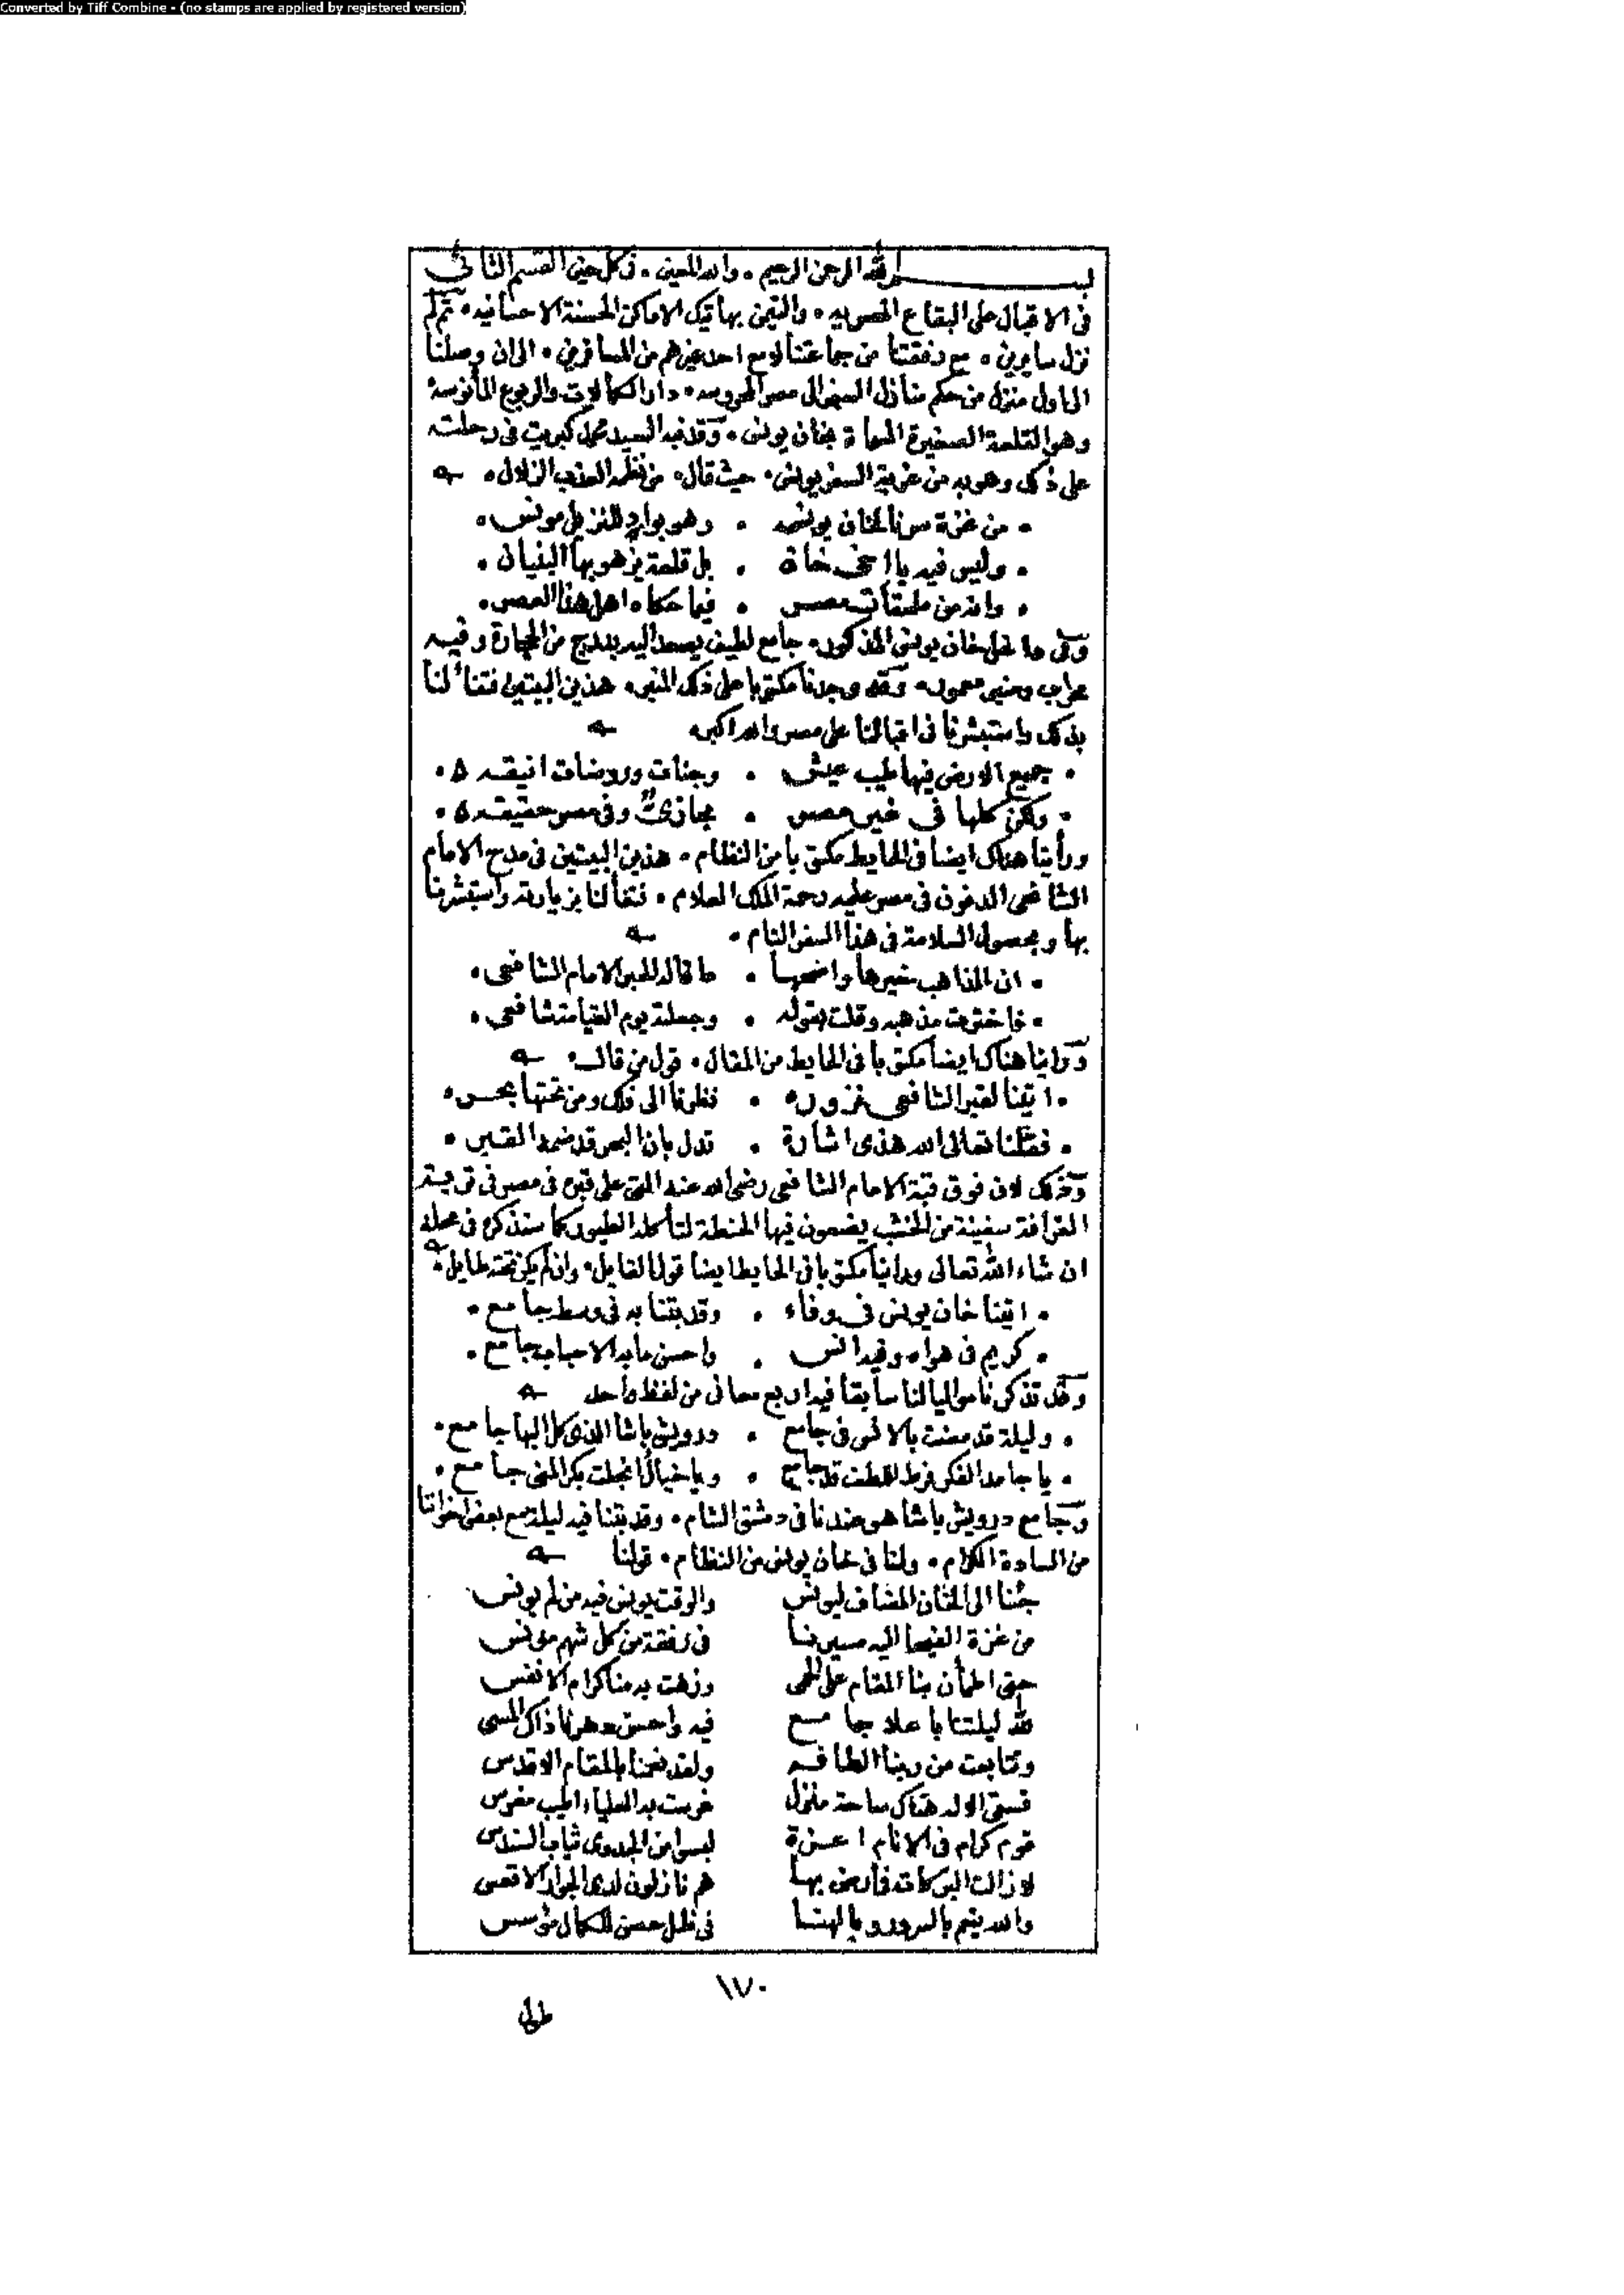 Converted by Tiff Combine - (no stamps are applied by registered version)
بسم الله الرحمن الرحيم . والله المعين . في كل حين القسم الثاني
في الاقبال على البقاع المصريه . والتيمن بهاتيك الاماكن الحسنة الاحسانيه . ثم لم
نزل سايرين . مع رفقتنا من جماعتنا لا مع احد غيرهم من المسافرين . الى ان وصلنا
الى اول منزل من حكم منازل السفر الى مصر المحروسه . دار الكمالات والربوع المأنوسة
وهو القلعة الصغيرة المسماة بخان يونس . وقد نبه السيد محمد كبريت في رحلته
على ذلك وهو به من غربة السفر يونس . حيث قال . من نظمه العذب الزلال .
. من غزة سرنا لخان يونس . وهو بواد للنزيل مونس .
. وليس فيه يا اخي خان . بل قلعة يزهو بها البنيان .
. وانه من ملحقات مصر . فيما حكاه اهل هذا العصر .
وفي داخل خان يونس المذكور . جامع لطيف يصعد اليه بدرج من الحجارة وفيه
محراب ومنبر معمور . وقد وجدنا مكتوبا على ذلك المنبر . هذين البيتين فتفألنا
بذلك واستبشرنا في اقبالنا على مصر والله اكبر .
. جميع الارض فيها طيب عيش . وجنات وروضات انيقه .
. ولكن كلها في غير مصر . مجازي وفي مصر حقيقه .
ورأينا هناك ايضا في الحايط مكتوبا من النظام . هذين البيتين في مدح الامام
الشافعي المدفون في مصر عليه رحمة الملك العلام . فتفألنا بزيارته واستبشرنا
بها وبحصول السلامة في هذا السفر التام .
. ان المذاهب خيرها واصحها . ما قاله الحبر الامام الشافعي .
. فاخترت مذهبه وقلت بقوله . وجعلته يوم القيامة شافعي .
ورأينا هناك ايضا مكتوبا في الحايط من المقال . قول من قال .
. اتينا لقبر الشافعي نزوره . نظرنا الى فلك ومن تحتها بحر .
. فقلنا تعالى الله هذي اشارة . تدل بان البحر قد ضمه القبر .
وذلك لان فوق قبة الامام الشافعي رضي الله عنه التي على قبره في مصر في تربة
القرافة سفينة من الخشب يضعون فيها الحنطة لتأكله الطيور كما سنذكره في محله
ان شاء الله تعالى ورأينا مكتوبا في الحايط ايضا قول القايل . وان لم يكن تحته طايل .
. اتينا خان يونس في وفاء . وقد بتنا به في وسط جامع .
. كريم في هواه وفيه انس . واحسن ما به الاحباب جامع .
وقد تذكرنا مواليا لنا سابقا فيه اربع معاني من لفظ واحد
. وليلة قد مضت بالانس في جامع . درويش باشا الذي كل البها جامع .
. يا جامد الفكر فرط اللطف قد جامع . ويا خيالا انجلت بكر المنى جامع .
وجامع درويش باشا هو عندنا في دمشق الشام . وقد بتنا فيه ليلة مع بعض اخواننا
من السادة الكرام . ولنا في خان يونس من النظام . قولنا
جئنا الى الخان المضاف ليونس والوقت يونس فيه من لم يونس
من غزة الفيحا اليه مسيرنا في رفقة من كل شهم مونس
حتى اطمأن بنا المقام على الحمى وزهت به منا كرام الانفس
لله ليلتنا باعلا جامع فيه واحسن دهرنا ذاك المسي
وتتابعت من ربنا الطافه ولقد نعمنا بالمقام الاقدس
فسقى الاله هناك ساحة منزل غرست به العلياء اطيب مغرس
قوم كرام في الانام اعزة لبسوا من الجدوى ثياب السندس
لا زالت البركات فائض بها هم نازلون لدى الجوار الاقعس
والله يتم بالسرور وبالهنا في ظل حسن للكمال مؤسس
١٧٠